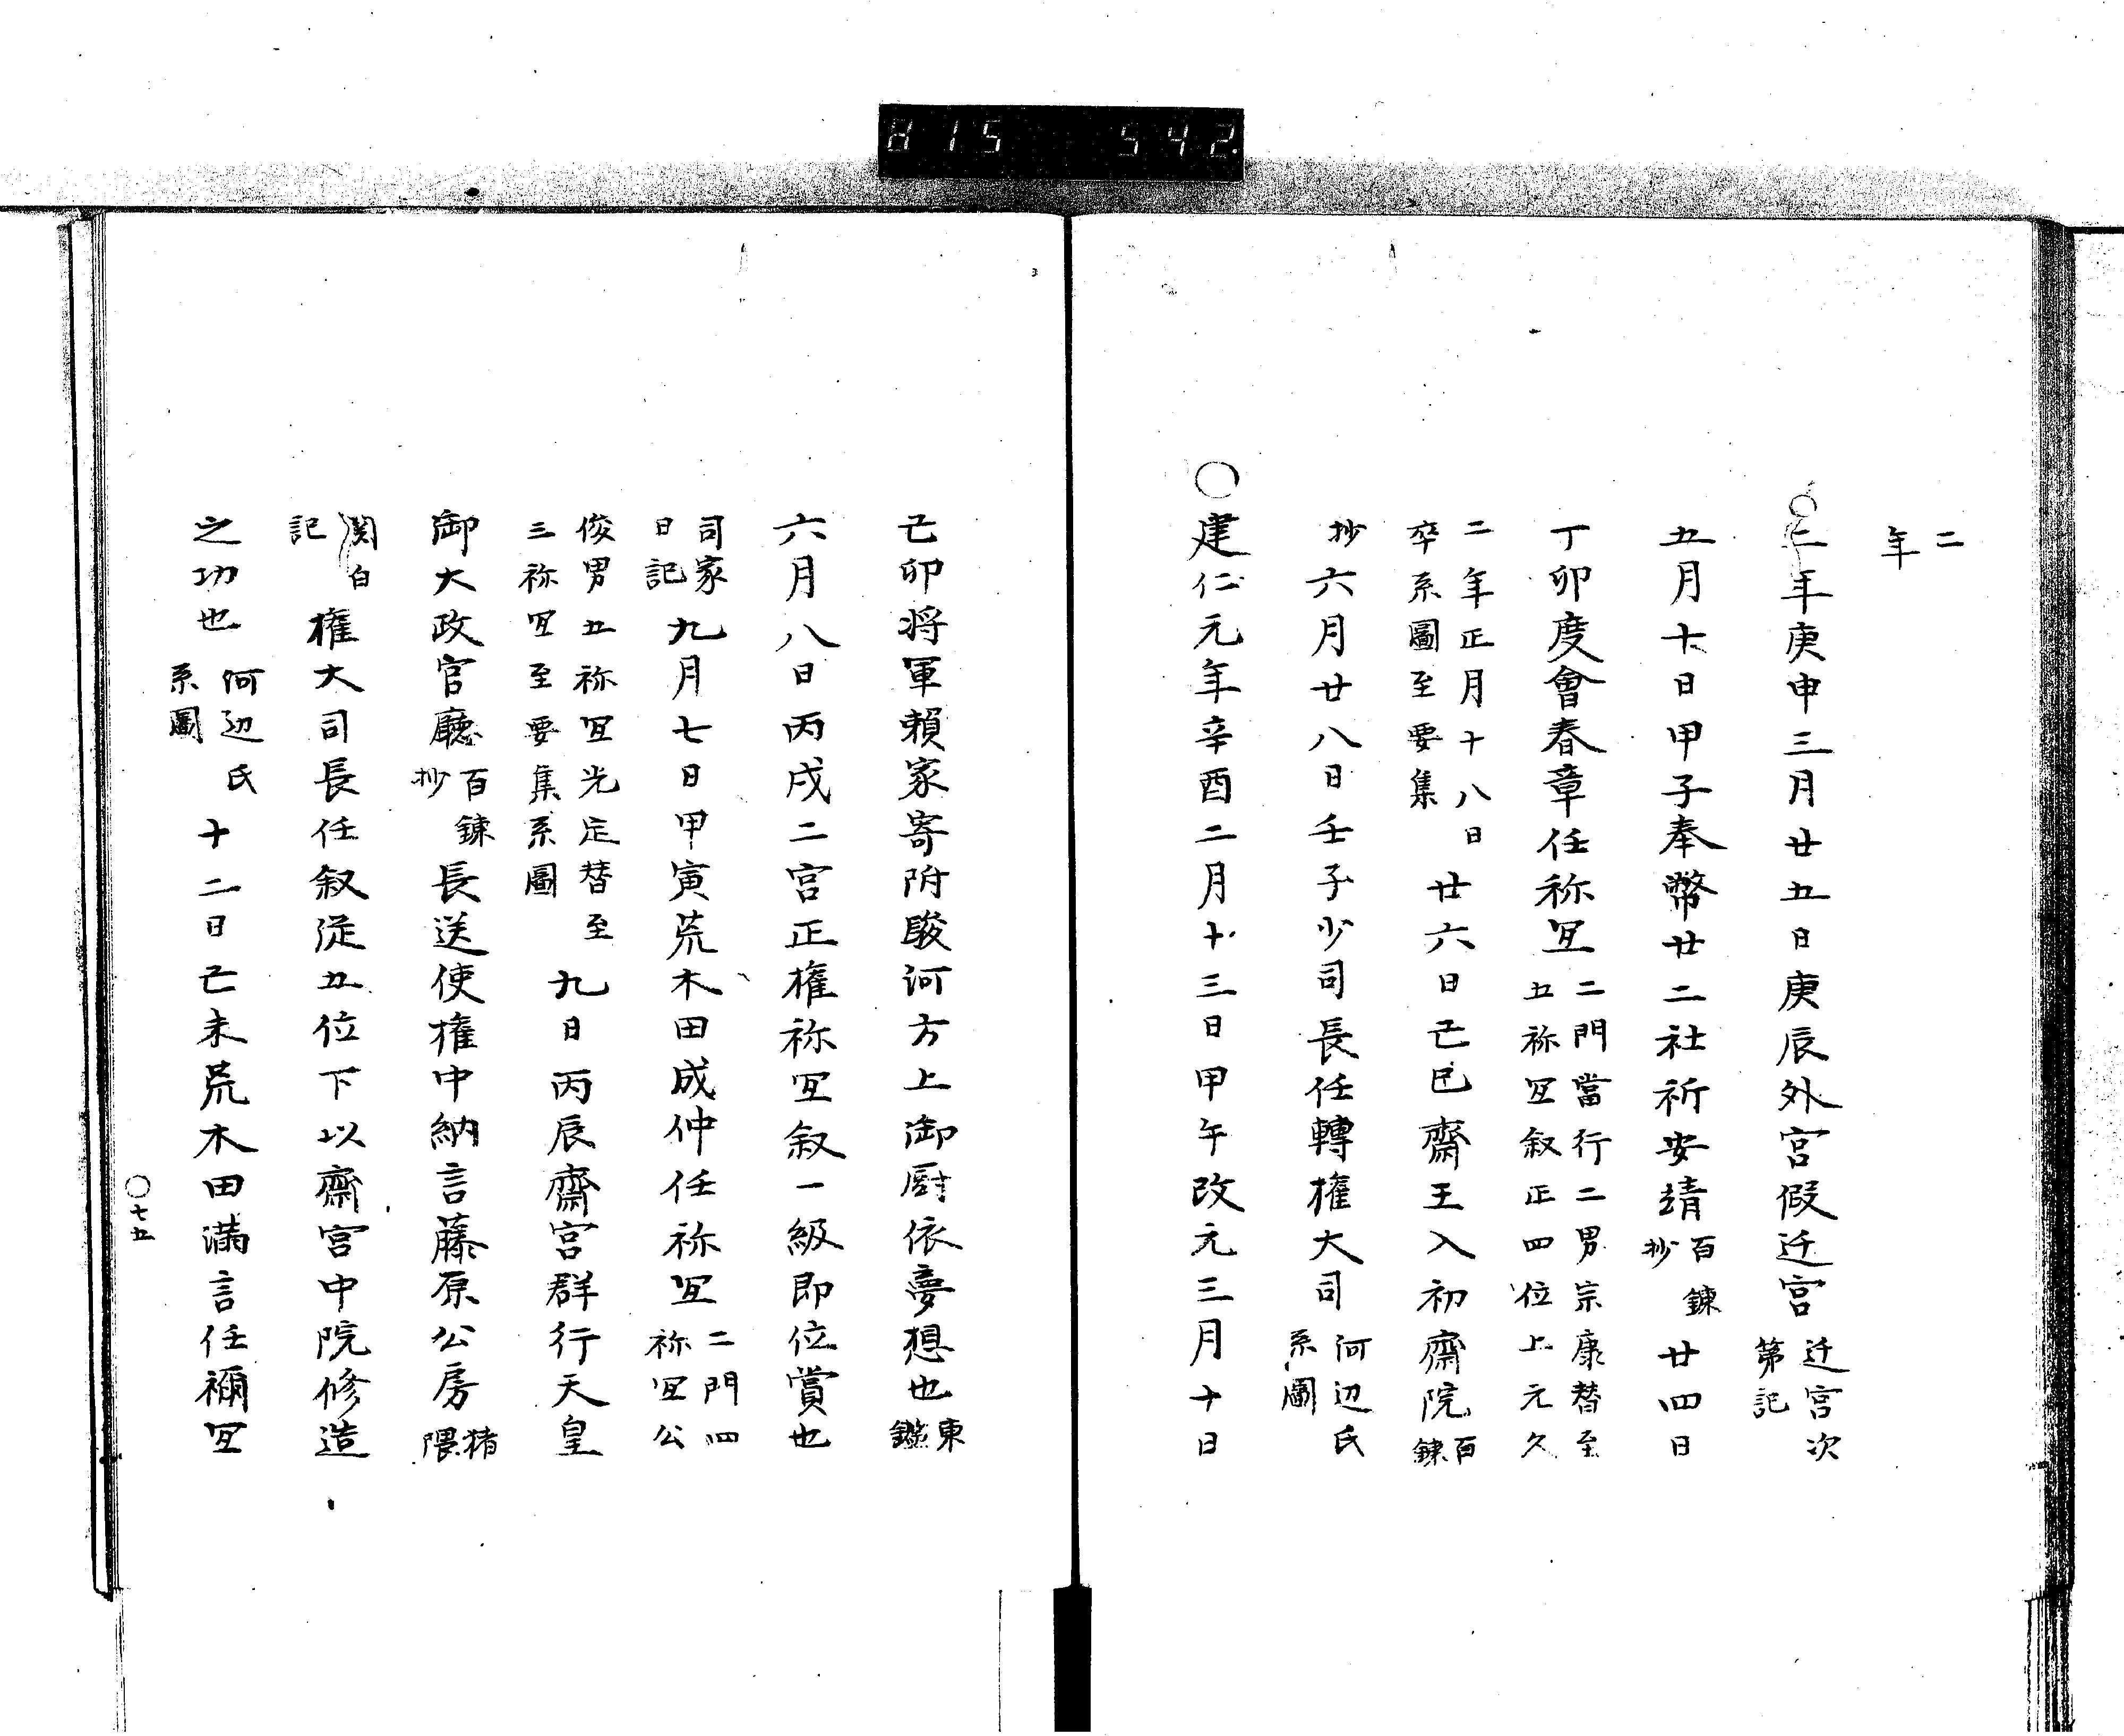 815 542
二
年
○二年庚申三月廿五日庚辰外宮假迁宮 迁宮次
第記
五月十日甲子奉幣廿二社祈安靖 百鍊
抄 廿四日
丁卯度會春章任祢冝 二門當行二男宗康替至
五祢冝叙正四位上元久
二年正月十八日
卒系圖至要集 廿六日己巳齋王入初齋院 百
鍊
抄 六月廿八日壬子少司長任轉権大司 河辺氏
系圖
○建仁元年辛酉二月十三日甲午改元三月十日
己卯将軍頼家寄附駿河方上御厨依夢想也 東
鑑
六月八日丙戌二宮正権祢冝叙一級即位賞也
司家
日記 九月七日甲寅荒木田成仲任祢冝 二門四
祢冝公
俊男五祢冝光定替至
三祢冝至要集系圖 九日丙辰齋宮群行天皇
御大政官廳 百鍊
抄 長送使権中納言藤原公房 猪
隈
関白
記 権大司長任叙従五位下以齋宮中院修造
之功也 河辺氏
系圖 十二日己未荒木田満言任禰冝
○七五